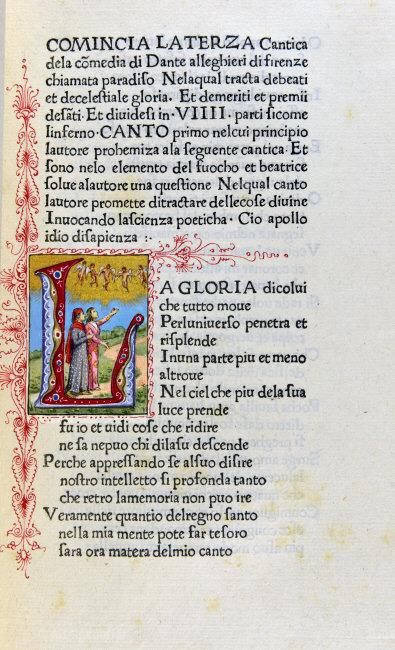 COMINCIA LATERZA Cantica
dela cōmedia di Dante alleghieri di firenze
chiamata paradiso Nelaqual tracta debeati
et decelestiale gloria. Et demeriti et premii
desāti. Et diuidesi in ·VIIII· parti sicome
linferno · CANTO primo nelcui principio
lautore prohemiza ala seguente cantica · Et
sono nelo elemento del fuocho et beatrice
solue alautore una questione Nelqual canto
lautore promette ditractare dellecose diuine
Inuocando lascienza poeticha · Cio apollo
idio disapienza :·
LA GLORIA dicolui
che tutto moue
Perluniuerso penetra et
risplende
Inuna parte piu et meno
altroue
Nelciel che piu dela sua
luce prende
fu io et uidi cose che ridire
ne sa nepuo chi dilasu descende
Perche appressando se alsuo disire
nostro intelletto si profonda tanto
che retro lamemoria non puo ire
Veramente quantio delregno santo
nella mia mente pote far tesoro
sara ora matera delmio canto